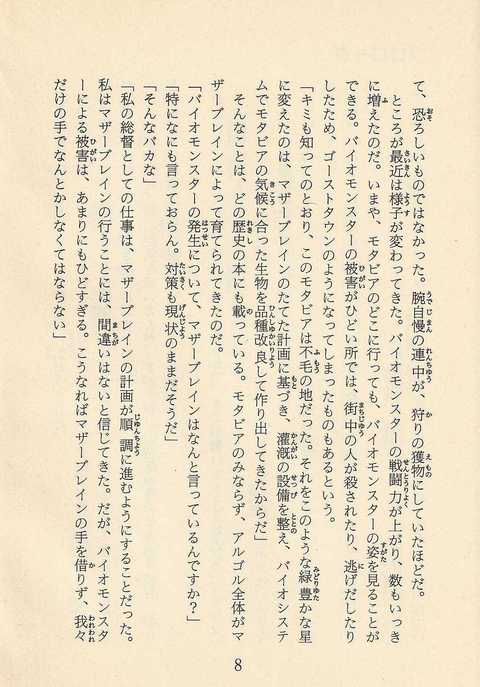 て、恐ろしいものではなかった。腕自慢の連中が、狩りの獲物にしていたほどだ。
ところが最近は様子が変わってきた。バイオモンスターの戦闘力が上がり、数もいっき
に増えたのだ。いまや、モタビアのどこに行っても、バイオモンスターの姿を見ることが
できる。バイオモンスターの被害がひどい所では、街中の人が殺されたり、逃げだしたり
したため、ゴーストタウンのようになってしまったものもあるという。
「キミも知ってのとおり、このモタビアは不毛の地だった。それをこのような緑豊かな星
に変えたのは、マザーブレインのたてた計画に基づき、灌漑の設備を整え、バイオシステ
ムでモタビアの気候に合った生物を品種改良して作り出してきたからだ」
そんなことは、どの歴史の本にも載っている。モタビアのみならず、アルゴル全体がマ
ザーブレインによって育てられてきたのだ。
「バイオモンスターの発生について、マザーブレインはなんと言っているんですか？」
「特になにも言っておらん。対策も現状のままだそうだ」
「そんなバカな」
「私の総督としての仕事は、マザーブレインの計画が順調に進むようにすることだった。
私はマザーブレインの行うことには、間違いはないと信じてきた。だが、バイオモンスタ
ーによる被害は、あまりにもひどすぎる。こうなればマザーブレインの手を借りず、我々
だけの手でなんとかしなくてはならない」
8